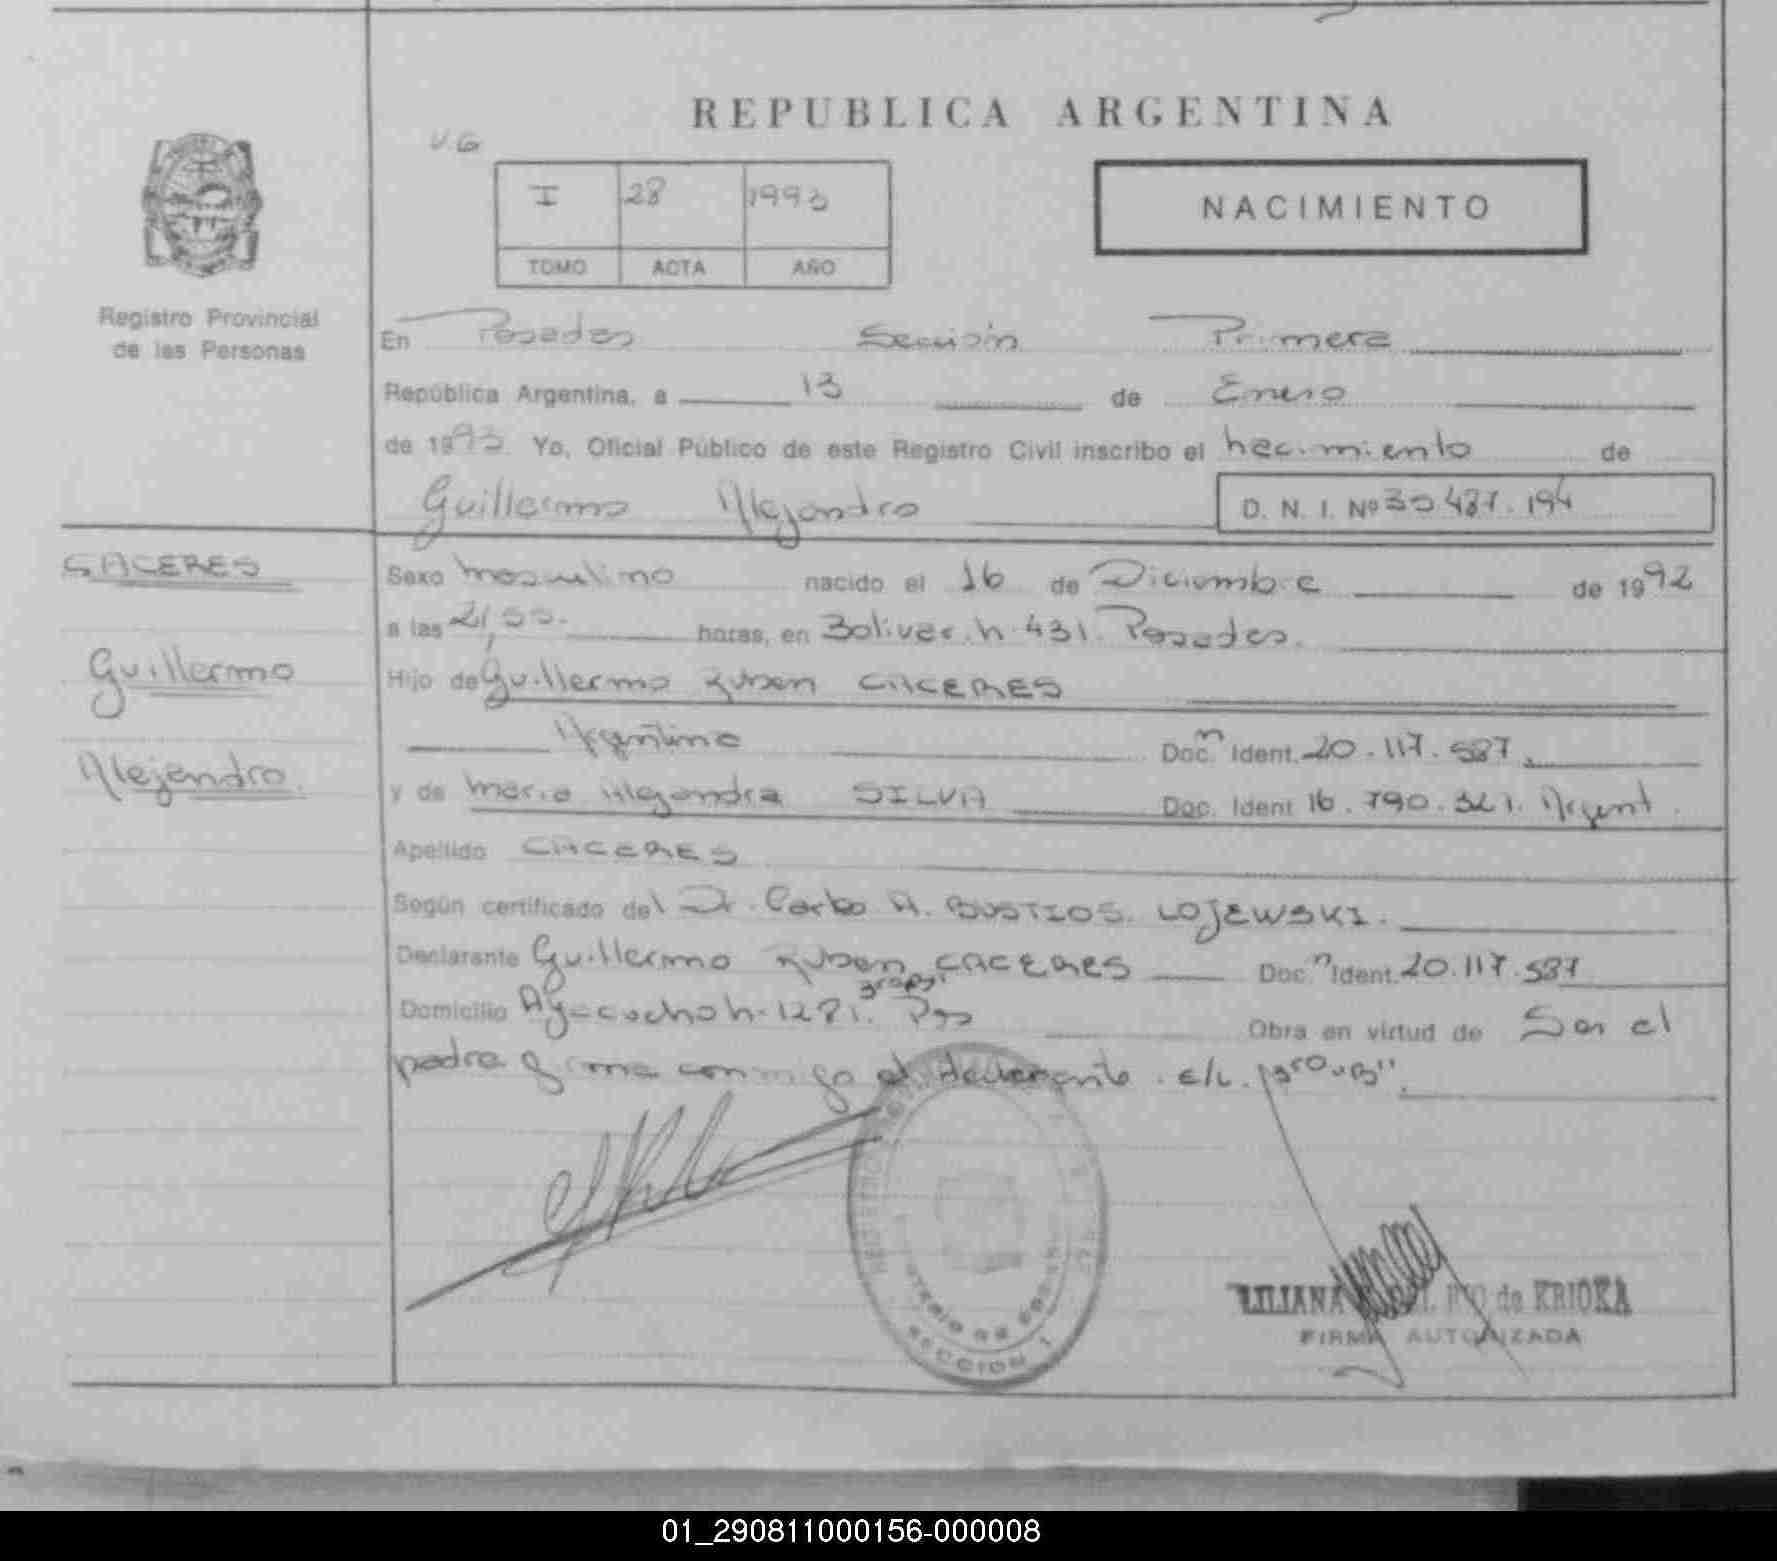 REPUBLICA ARGENTINA
V.G
I 28 1993
TOMO ACTA AÑO
NACIMIENTO
Registro Provincial
de las Personas
En Posadas Sección Primera
República Argentina, a 13 de Enero
de 1993. Yo, Oficial Público de este Registro Civil inscribo el nacimiento de
Guillermo Alejandro
D. N. I. Nº 30.487.194
CACERES
Guillermo
Alejandro.
Sexo masculino nacido el 16 de Diciembre de 1992
a las 21,50. horas, en Bolivar. n. 431. Posadas.
Hijo de Guillermo Ruben CACERES
Argentino Doc.n Ident. 20.117.587.
y de Maria Alejandra SILVA Doc. Ident 16.790.321. Argent.
Apellido CACERES
Según certificado del Dr. Carlos A. BUSTIOS. LOJEWSKI.
Declarante Guillermo Ruben CACERES Doc.n Ident. 20.117.587
Domicilio Ayacucho n. 1281. Pgs Obra en virtud de Ser el
padre firma conmigo el declarante. E/L.
SECCION 1
LILIANA de KRIOKA
FIRMA AUTORIZADA
01_290811000156-000008